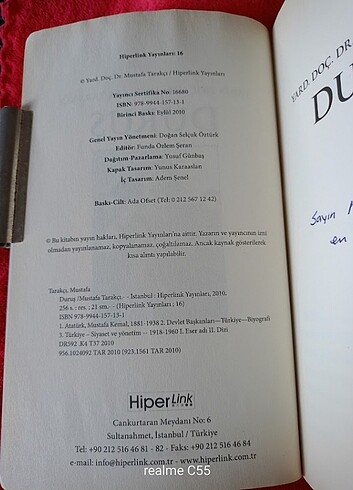 Hiperlink Yayınları: 16
© Yard. Doç. Dr. Mustafa Tarakçı / Hiperlink Yayınları
Yayıncı Sertifika No: 16680
ISBN: 978-9944-157-13-1
Birinci Baskı: Eylül 2010
Genel Yayın Yönetmeni: Doğan Selçuk Öztürk
Editör: Funda Özlem Şeran
Dağıtım-Pazarlama: Yusuf Günbaş
Kapak Tasarım: Yunus Karaaslan
İç Tasarım: Adem Şenel
Baskı-Cilt: Ada Ofset (Tel: 0 212 567 12 42)
© Bu kitabın yayın hakları, Hiperlink Yayınları'na aittir. Yazarın ve yayıncının izni
olmadan yayınlanamaz, kopyalanamaz, çoğaltılamaz. Ancak kaynak gösterilerek
kısa alıntı yapılabilir.
Tarakçı, Mustafa
Duruş /Mustafa Tarakçı.- - İstanbul : Hiperlink Yayınları, 2010,
256 s. : res. ; 21 sm.-- (Hiperlink Yayınları ; 16)
ISBN 978-9944-157-13-1
1. Atatürk, Mustafa Kemal, 1881-1938 2. Devlet Başkanları—Türkiye—Biyografi
3. Türkiye – Siyaset ve yönetim -- 1918-1960 I. Eser adı II. Dizi
DR592 .K4 T37 2010
956.1024092 TAR 2010 (923.1561 TAR 2010)
HiperLink
Cankurtaran Meydanı No: 6
Sultanahmet, İstanbul / Türkiye
Tel: +90 212 516 46 81 - 82 - Faks: +90 212 516 46 84
e-mail: info@hiperlink.com.tr - www.hiperlink.com.tr
YARD. DOÇ. DR.
DU
Sayın
en
realme C55